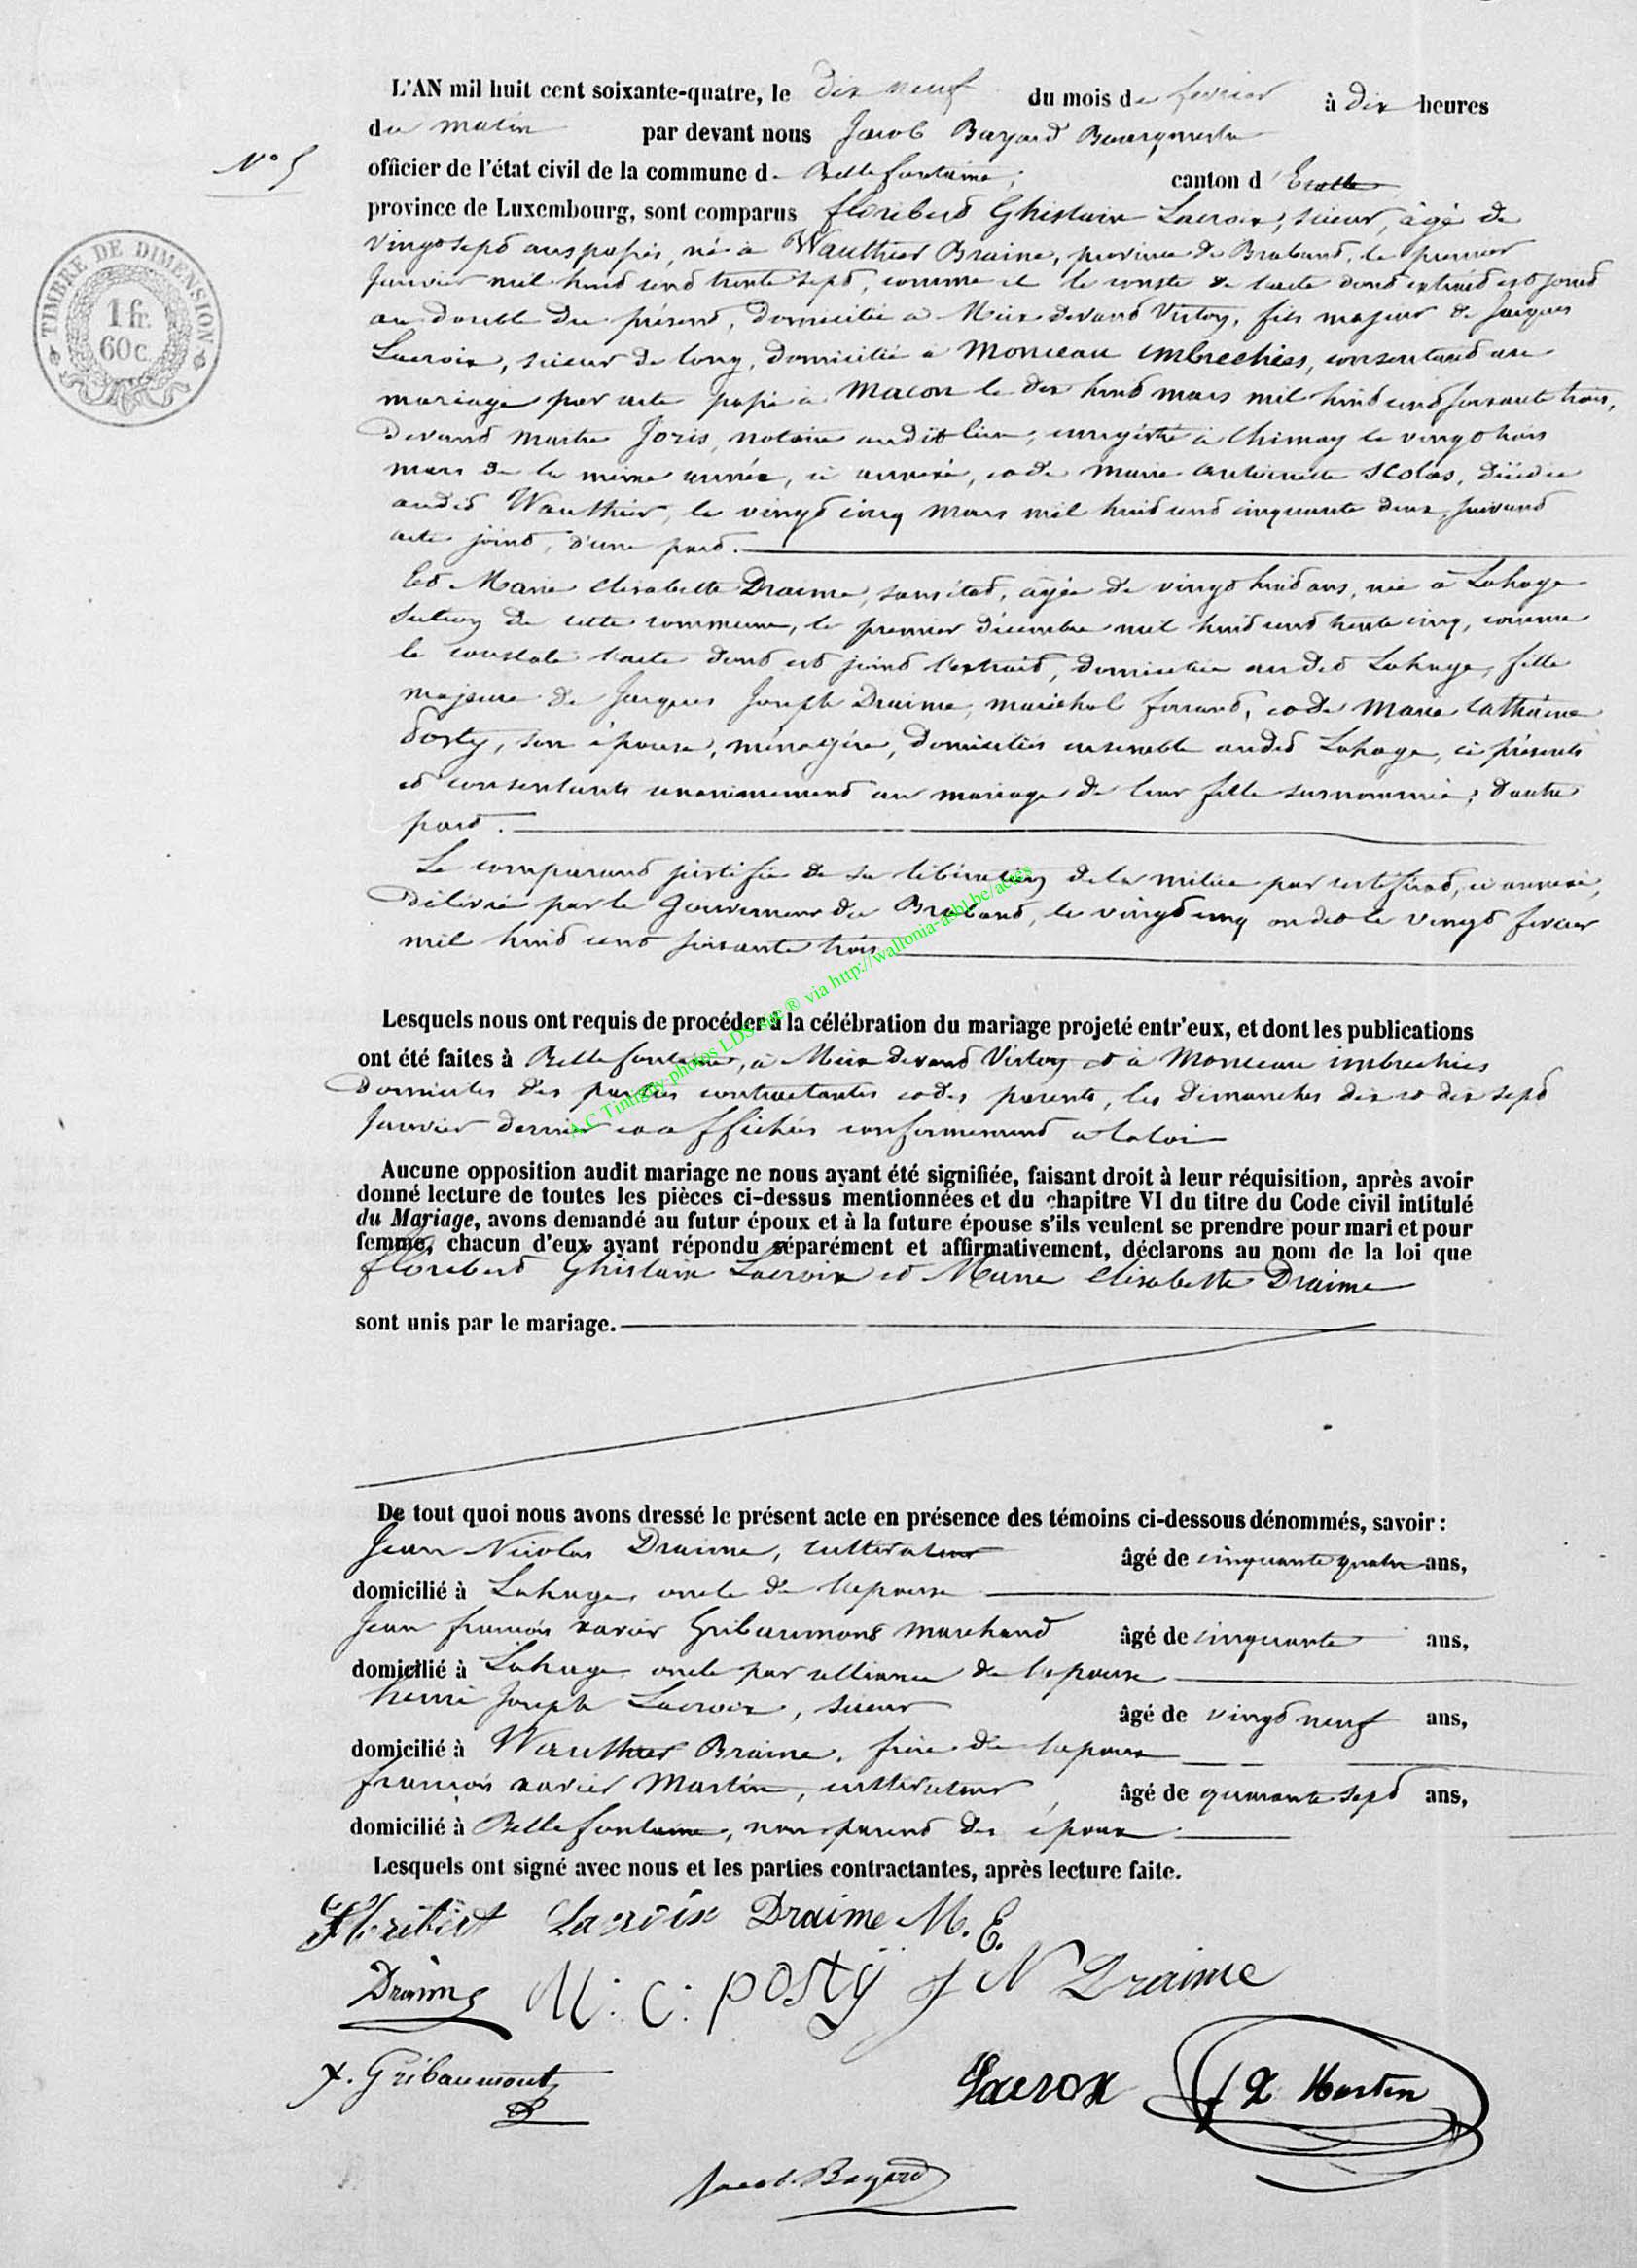 L'AN mil huit cent soixante-quatre, le dix neuf du mois de fevrier à dix heures
du matin par devant nous Jacob Bayard Bourgmestre
N° 5
officier de l'état civil de la commune d. Bellefontaine, canton d'Etalle
province de Luxembourg, sont comparus floribert Ghislain Lacroix, scieur, âgé de
vingt sept ans passés, né à Wauthier Braine, province de Brabant, le premier
Janvier mil huit cent trente sept, comme il le conste de l'acte dont extrait est joint
au double du présent, domicilié à Meix devant Virton, fils majeur de Jacques
Lacroix, scieur de long, domicilié à Monceau imbrechies, consentant au
mariage par acte passé à Macon le dix huit mars mil huit cent soixante trois,
devant maitre Joris, notaire audit lieu, enregistré à Chimay le vingt trois
mars de la même année, ci annexé, et de marie antoinette Scolas, décédée
audit Wauthier, le vingt cinq mars mil huit cent cinquante deux, suivant
acte joint, d'une part.
Et Marie élisabette Draime, sans état, âgée de vingt huit ans, née à Lahage
section de cette commune, le premier décembre mil huit cent trente cinq, comme
le constate l'acte dont est joint l'extrait, domiciliée audit Lahage, fille
majeure de Jacques Joseph Draime, maréchal ferrant, et de marie Cathérine
Posty, son épouse, ménagère, domiciliés ensemble audit Lahage, ci présents
et consentants unanimement au mariage de leur fille surnommée; d'autre
part.
Le comparant justifie de sa libération de la milice par certificat, ci annexé,
délivré par le Gouverneur du Brabant, le vingt cinq audit le vingt fevrier
mil huit cent soixante trois
Lesquels nous ont requis de procéder à la célébration du mariage projeté entr'eux, et dont les publications
ont été faites à Bellefontaine, à Meix devant Virton et à Monceau imbrechies
domiciles des parties contractantes et des parents, les dimanches dix et dix sept
Janvier dernier et affichées conformement à la loi
Aucune opposition audit mariage ne nous ayant été signifiée, faisant droit à leur réquisition, après avoir
donné lecture de toutes les pièces ci-dessus mentionnées et du chapitre VI du titre du Code civil intitulé
du Mariage, avons demandé au futur époux et à la future épouse s'ils veulent se prendre pour mari et pour
femme, chacun d'eux ayant répondu séparément et affirmativement, déclarons au nom de la loi que
floribert Ghislain Lacroix et Marie élisabette Draime
sont unis par le mariage.
De tout quoi nous avons dressé le présent acte en présence des témoins ci-dessous dénommés, savoir :
Jean Nicolas Draime, cultivateur âgé de cinquante quatre ans,
domicilié à Lahage, oncle de l'épouse
Jean francois xavier Gribaumont marchand âgé de cinquante ans,
domicilié à Lahage oncle par alliance de l'épouse
henri Joseph Lacroix, scieur âgé de vingt neuf ans,
domicilié à Wauthier Braine, frère de l'époux
francois xavier Martin, cultivateur, âgé de quarante sept ans,
domicilié à Bellefontaine, non parent des époux
Lesquels ont signé avec nous et les parties contractantes, après lecture faite.
Floribert Lacroix Draime M. E.
Draime M. C. posty J N Draime
X. Gribaumont Lacrox f X Martin
Jacob Bayard
TIMBRE DE DIMENSION
1 fr.
60 c.
A.C Tintigny photos LDS sic ® via http://wallonia-asbl.be/actes